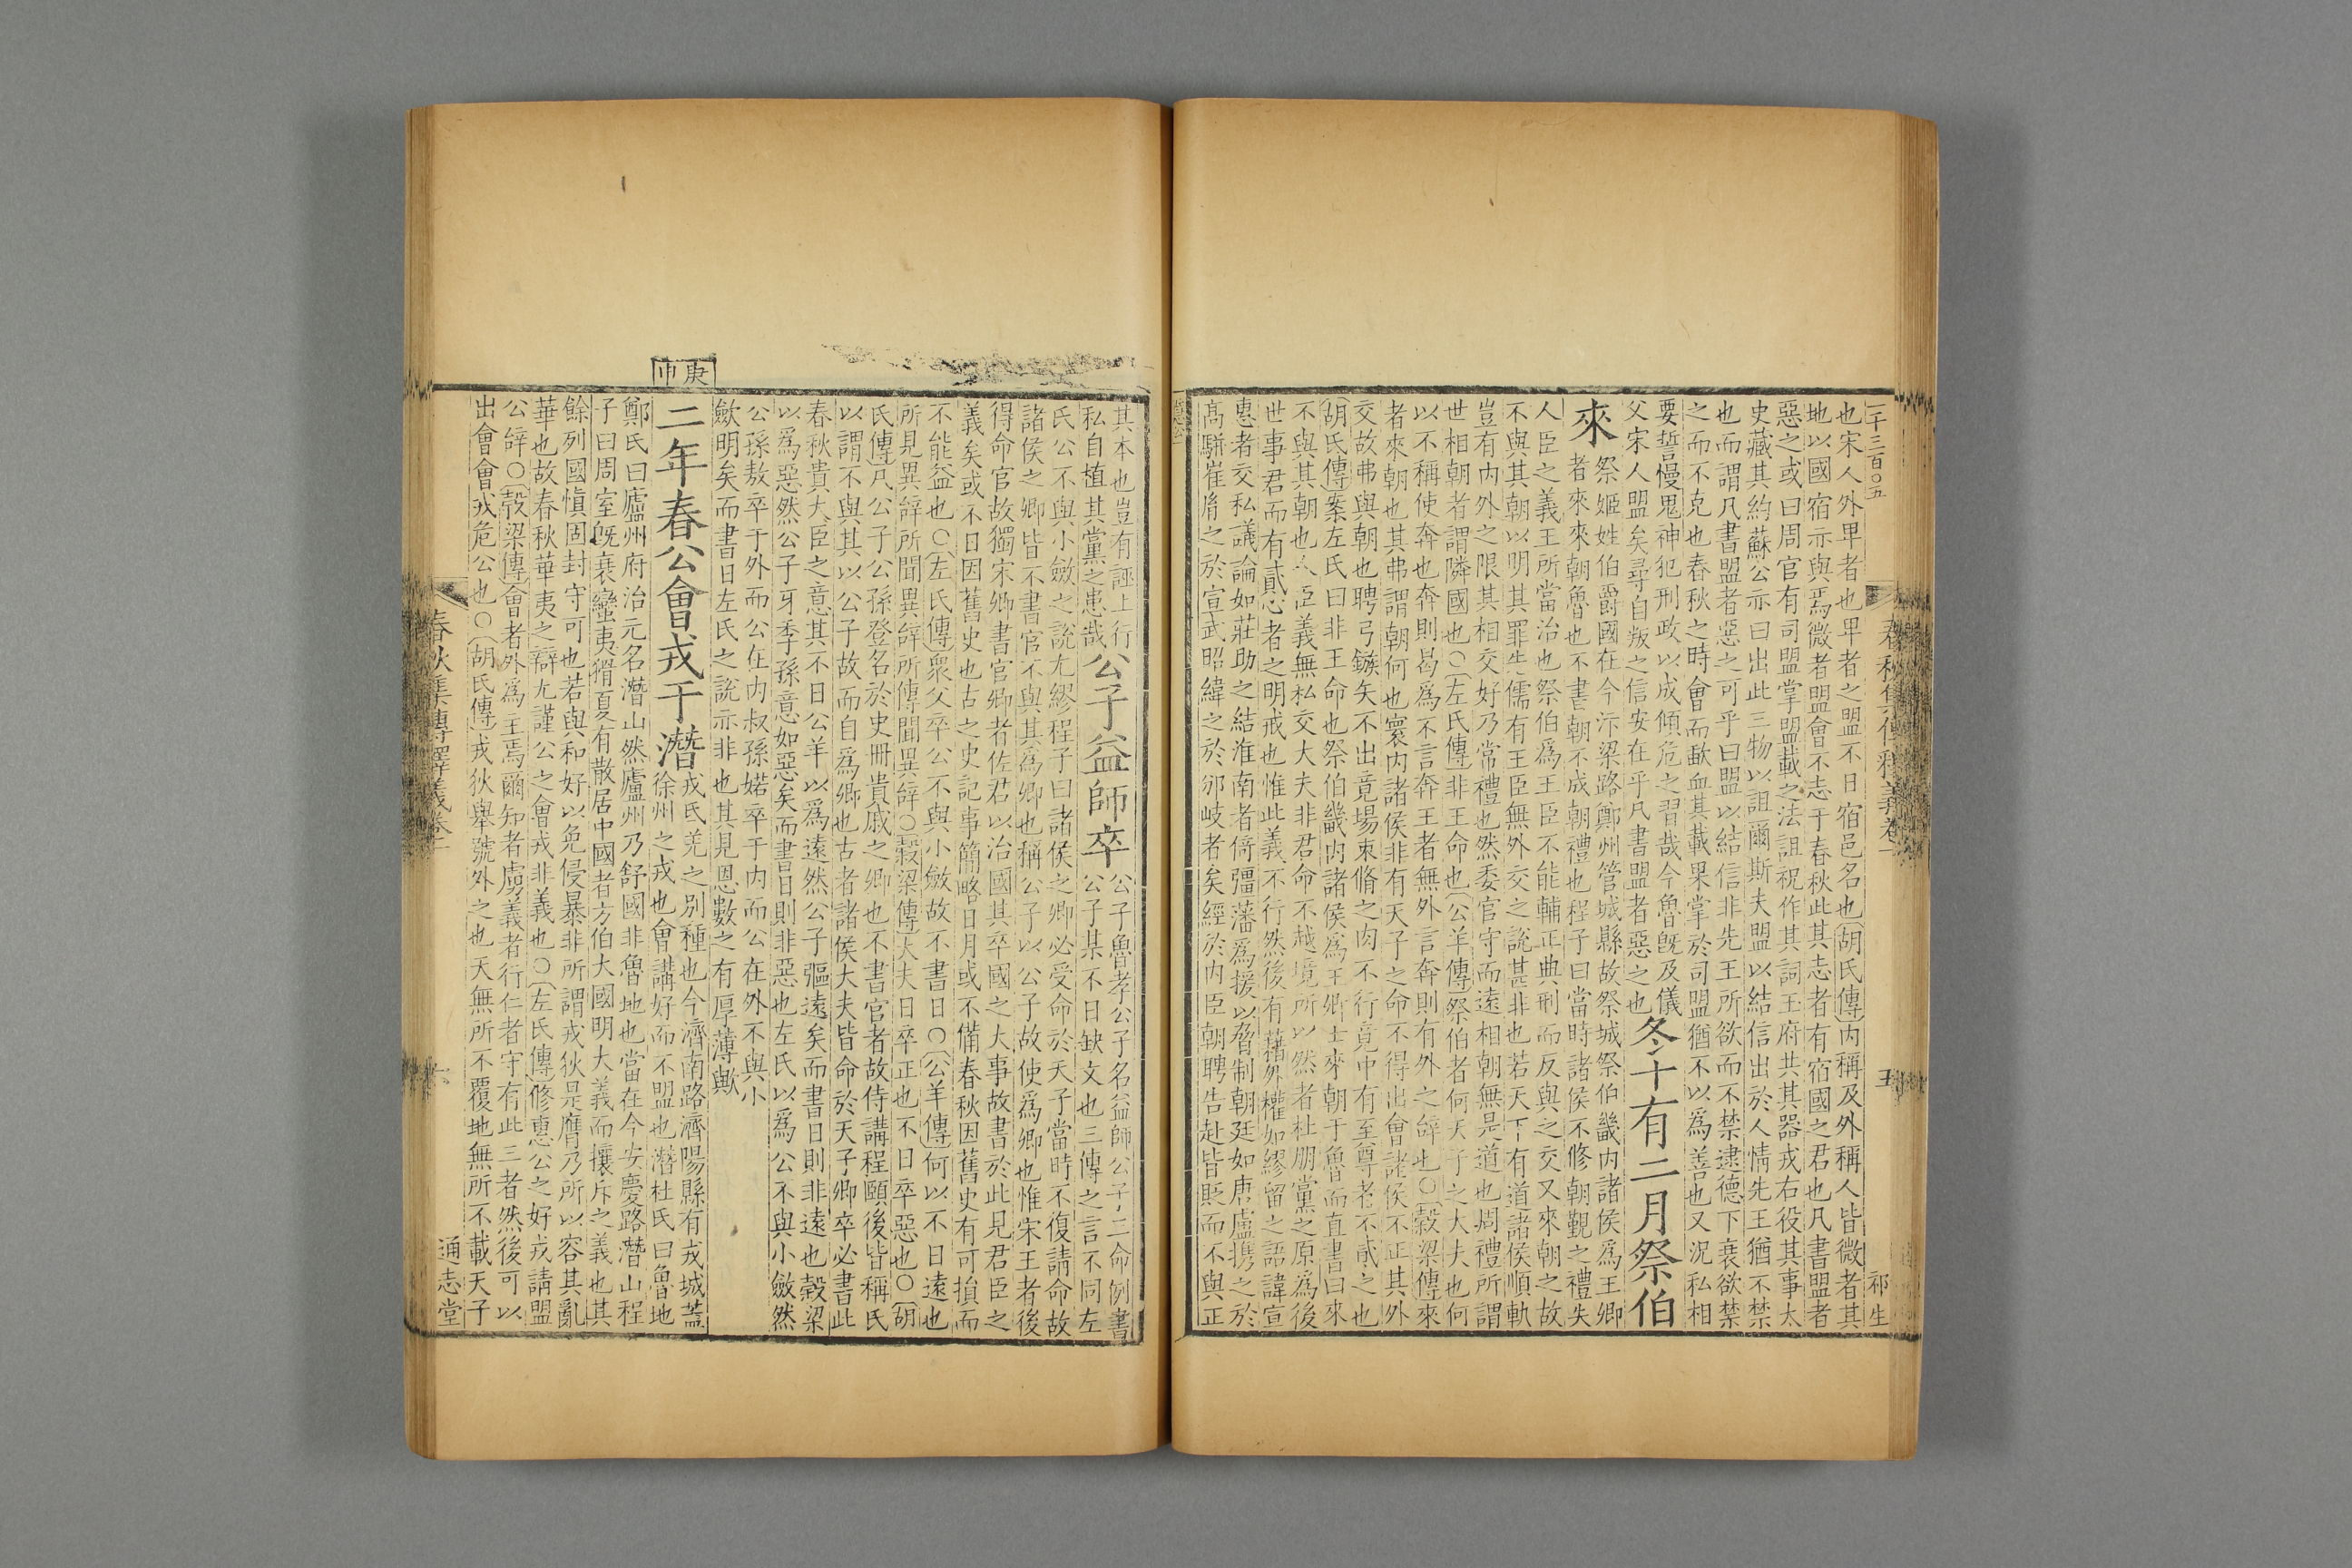 一千三百〇五　春秋集傳釋義卷一　五　祁生
也宋人外卑者也卑者之盟不日宿邑名也(胡氏傳)內稱及外稱人皆微者其
地以國宿亦與焉微者盟會不志于春秋此其志者有宿國之君也凡書盟者
惡之或曰周官有司盟掌盟載之法詛祝作其詞玉府共其器戎右役其事太
史藏其約蘇公亦曰出此三物以詛爾斯夫盟以結信出於人情先王猶不禁
也而謂凡書盟者惡之可乎曰盟以結信非先王所欲而不禁逮德下衰欲禁
之而不克也春秋之時會而歃血其載果掌於司盟猶不以爲善也又況私相
要誓慢鬼神犯刑政以成傾危之習哉今魯旣及儀
父宋人盟矣尋自叛之信安在乎凡書盟者惡之也
冬十有二月祭伯
來
祭姬姓伯爵國在今汴梁路鄭州管城縣故祭城祭伯畿內諸侯爲王卿
者來來朝魯也不書朝不成朝禮也程子曰當時諸侯不修朝覲之禮失
人臣之義王所當治也祭伯爲王臣不能輔正典刑而反與之交又來朝之故
不與其朝以明其罪先儒有王臣無外交之說甚非也若天下有道諸侯順軌
豈有內外之限其相交好乃常禮也然委官守而遠相朝無是道也周禮所謂
世相朝者謂隣國也〇(左氏傳)非王命也(公羊傳)祭伯者何天子之大夫也何
以不稱使奔也奔則曷爲不言奔王者無外言奔則有外之辭也〇(穀梁傳)來
者來朝也其弗謂朝何也寰內諸侯非有天子之命不得出會諸侯不正其外
交故弗與朝也聘弓鏃矢不出竟場束脩之肉不行竟中有至尊者不貳之也
(胡氏傳)案左氏曰非王命也祭伯畿內諸侯爲王卿士來朝于魯而直書曰來
不與其朝也人臣義無私交大夫非君命不越境所以然者杜朋黨之原爲後
世事君而有貳心者之明戒也惟此義不行然後有藉外權如繆留之語諱宣
惠者交私議論如莊助之結淮南者倚彊藩爲援以脅制朝廷如唐盧攜之於
髙駢崔胤之於宣武昭緯之於邠岐者矣經於內臣朝聘告赴皆貶而不與正
其本也豈有誣上行
私自植其黨之患哉
公子益師卒
公子魯孝公子名益師公子二命例書
公子某不日缺文也三傳之言不同左
氏公不與小斂之說尤繆程子曰諸侯之卿必受命於天子當時不復請命故
諸侯之卿皆不書官不與其爲卿也稱公子以公子故使爲卿也惟宋王者後
得命官故獨宋卿書官卿者佐君以治國其卒國之大事故書於此見君臣之
義矣或不日因舊史也古之史記事簡略日月或不備春秋因舊史有可損而
不能益也〇(左氏傳)衆父卒公不與小斂故不書日〇(公羊傳)何以不日遠也
所見異辭所聞異辭所傳聞異辭〇(穀梁傳)大夫日卒正也不日卒惡也〇(胡
氏傳)凡公子公孫登名於史冊貴戚之卿也不書官者故侍講程頤後皆稱氏
以謂不與其以公子故而自爲卿也古者諸侯大夫皆命於天子卿卒必書此
春秋貴大臣之意其不日公羊以爲遠然公子彄遠矣而書日則非遠也穀梁
以爲惡然公子牙季孫意如惡矣而書日則非惡也左氏以爲公不與小斂然
公孫敖卒于外而公在內叔孫婼卒于內而公在外不與小
斂明矣而書日左氏之說亦非也其見恩數之有厚薄歟
庚申
二年春公會戎于潛
戎氏羌之別種也今濟南路濟陽縣有戎城蓋
徐州之戎也會講好而不盟也潛杜氏曰魯地
鄭氏曰廬州府治元名潛山然廬州乃舒國非魯地也當在今安慶路潛山程
子曰周室旣衰蠻夷猾夏有散居中國者方伯大國明大義而攘斥之義也其
餘列國愼固封守可也若與和好以免侵暴非所謂戎狄是膺乃所以容其亂
華也故春秋華夷之辯尤謹公之會戎非義也〇(左氏傳)修惠公之好戎請盟
公辭〇(穀梁傳)會者外爲主焉爾知者慮義者行仁者守有此三者然後可以
出會會戎危公也〇(胡氏傳)戎狄舉號外之也天無所不覆地無所不載天子
春秋集傳釋義卷一　六　通志堂